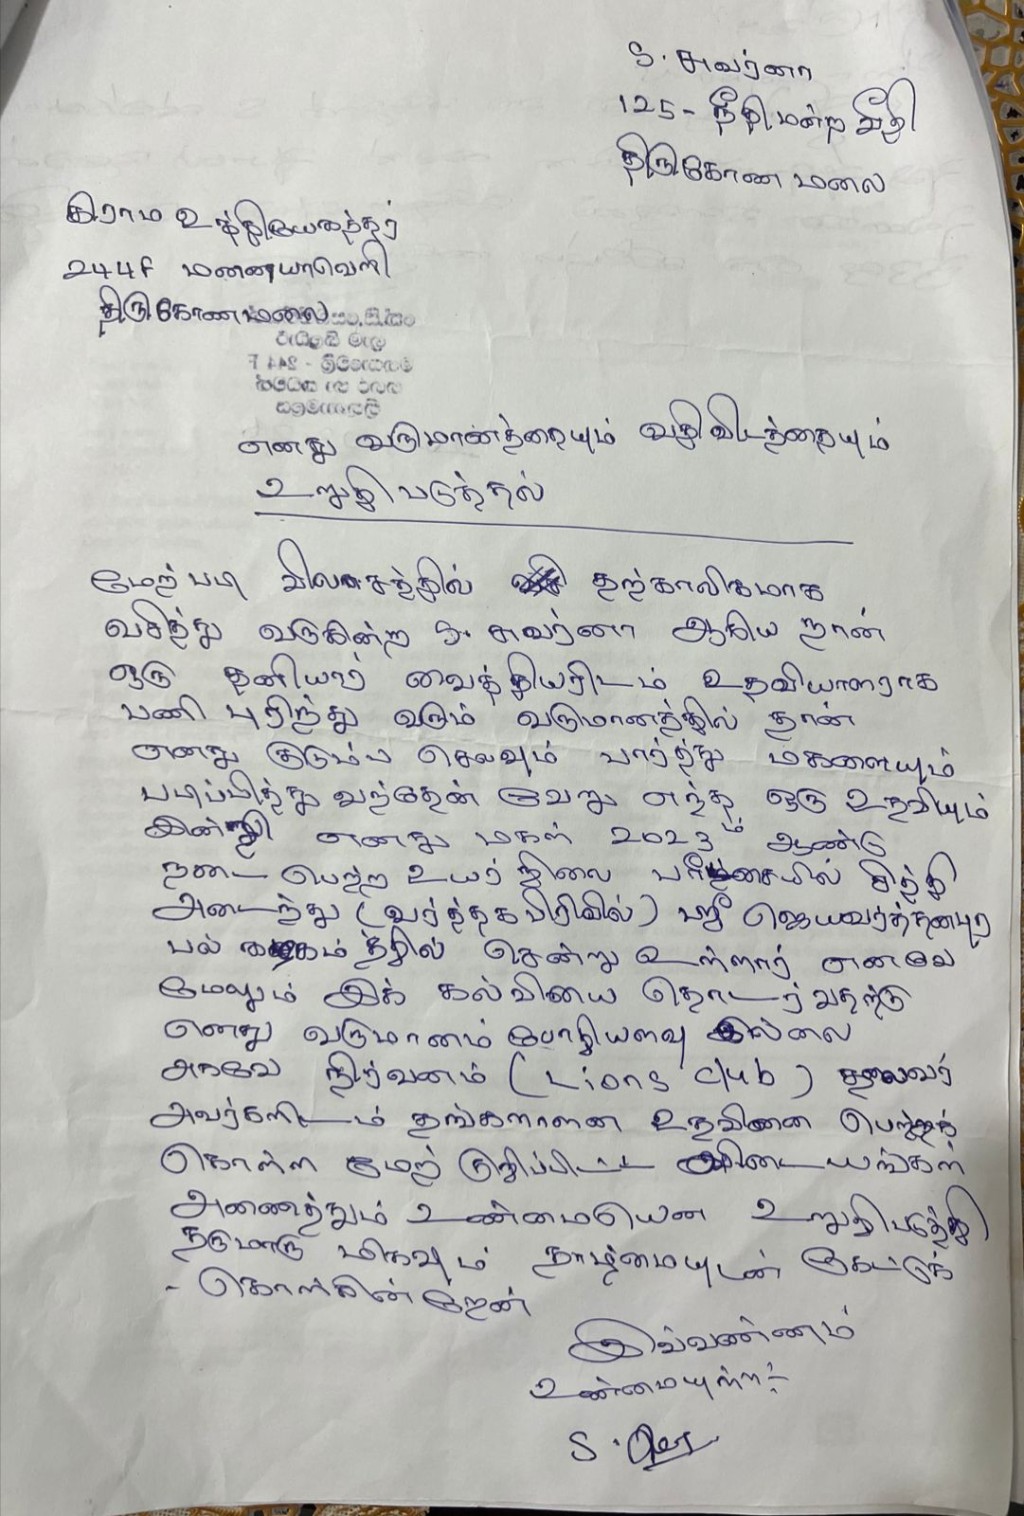 S. சுவர்னா
125 - நீதிமன்ற வீதி
திருகோணமலை
கிராம உத்தியோகத்தர்
244F மனையாவெளி
திருகோணமலை
எனது வருமானத்தையும் வதிவிடத்தையும்
உறுதிபடுத்தல்
மேற்படி விலாசத்தில் தற்காலிகமாக
வசித்து வருகின்ற S. சுவர்னா ஆகிய நான்
ஒரு தனியார் வைத்தியரிடம் உதவியாளராக
பணி புரிந்து வரும் வருமானத்தில் தான்
எனது குடும்ப செலவும் பார்த்து மகளையும்
படிப்பித்து வந்தேன் வேறு எந்த ஒரு உதவியும்
இன்றி எனது மகள் 2023ம் ஆண்டு
நடைபெற்ற உயர்நிலை பரீட்சையில் சித்தி
அடைந்து (வர்த்தகபிரிவில்) ஸ்ரீ ஜெயவர்த்தனபுர
பல்கலைகழகம்த்தில் சென்று உள்ளார் எனவே
மேலும் இக் கல்வியை தொடர்வதற்கு
எனது வருமானம் போதியளவு இல்லை
ஆகவே நிர்வனம் (Lions club) தலைவர்
அவர்களிடம் தங்களாளன உதவினை பெற்றுக்
கொள்ள மேற் குறிப்பிட்ட விடையங்கள்
அனைத்தும் உண்மையென உறுதிபடுத்தி
தருமாறு மிகவும் தாழ்மையுடன் கேட்டுக்
- கொள்கின்றேன்
இவ்வண்ணம்
உண்மையுள்ள